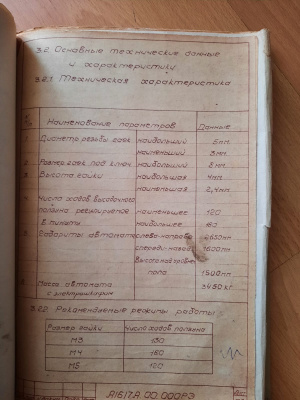 3.2. Основные технические данные
и характеристики
3.2.1 Техническая характеристика
Наименование параметров Данные
Диаметр резьбы гаек наибольший 5мм.
наименьший 3мм.
2. Размер гаек под ключ наибольший 8мм.
Высота гайки наибольшая 4мм.
наименьшая 2,4мм.
Число ходов высадочного
ползуна регулируемое наименьшее 120
в минуту наибольшее 160
Габариты автомата слева-направо
спереди-назад 1600мм.
Высота над уровнем
пола 1500мм.
Масса автомата 3450кг.
с электрошкафом
3.2.2 Рекомендуемые режимы работы
Размер гайки Число ходов ползуна
М3 130
М4 160
М5 100
А1617.А.00.000РЭ